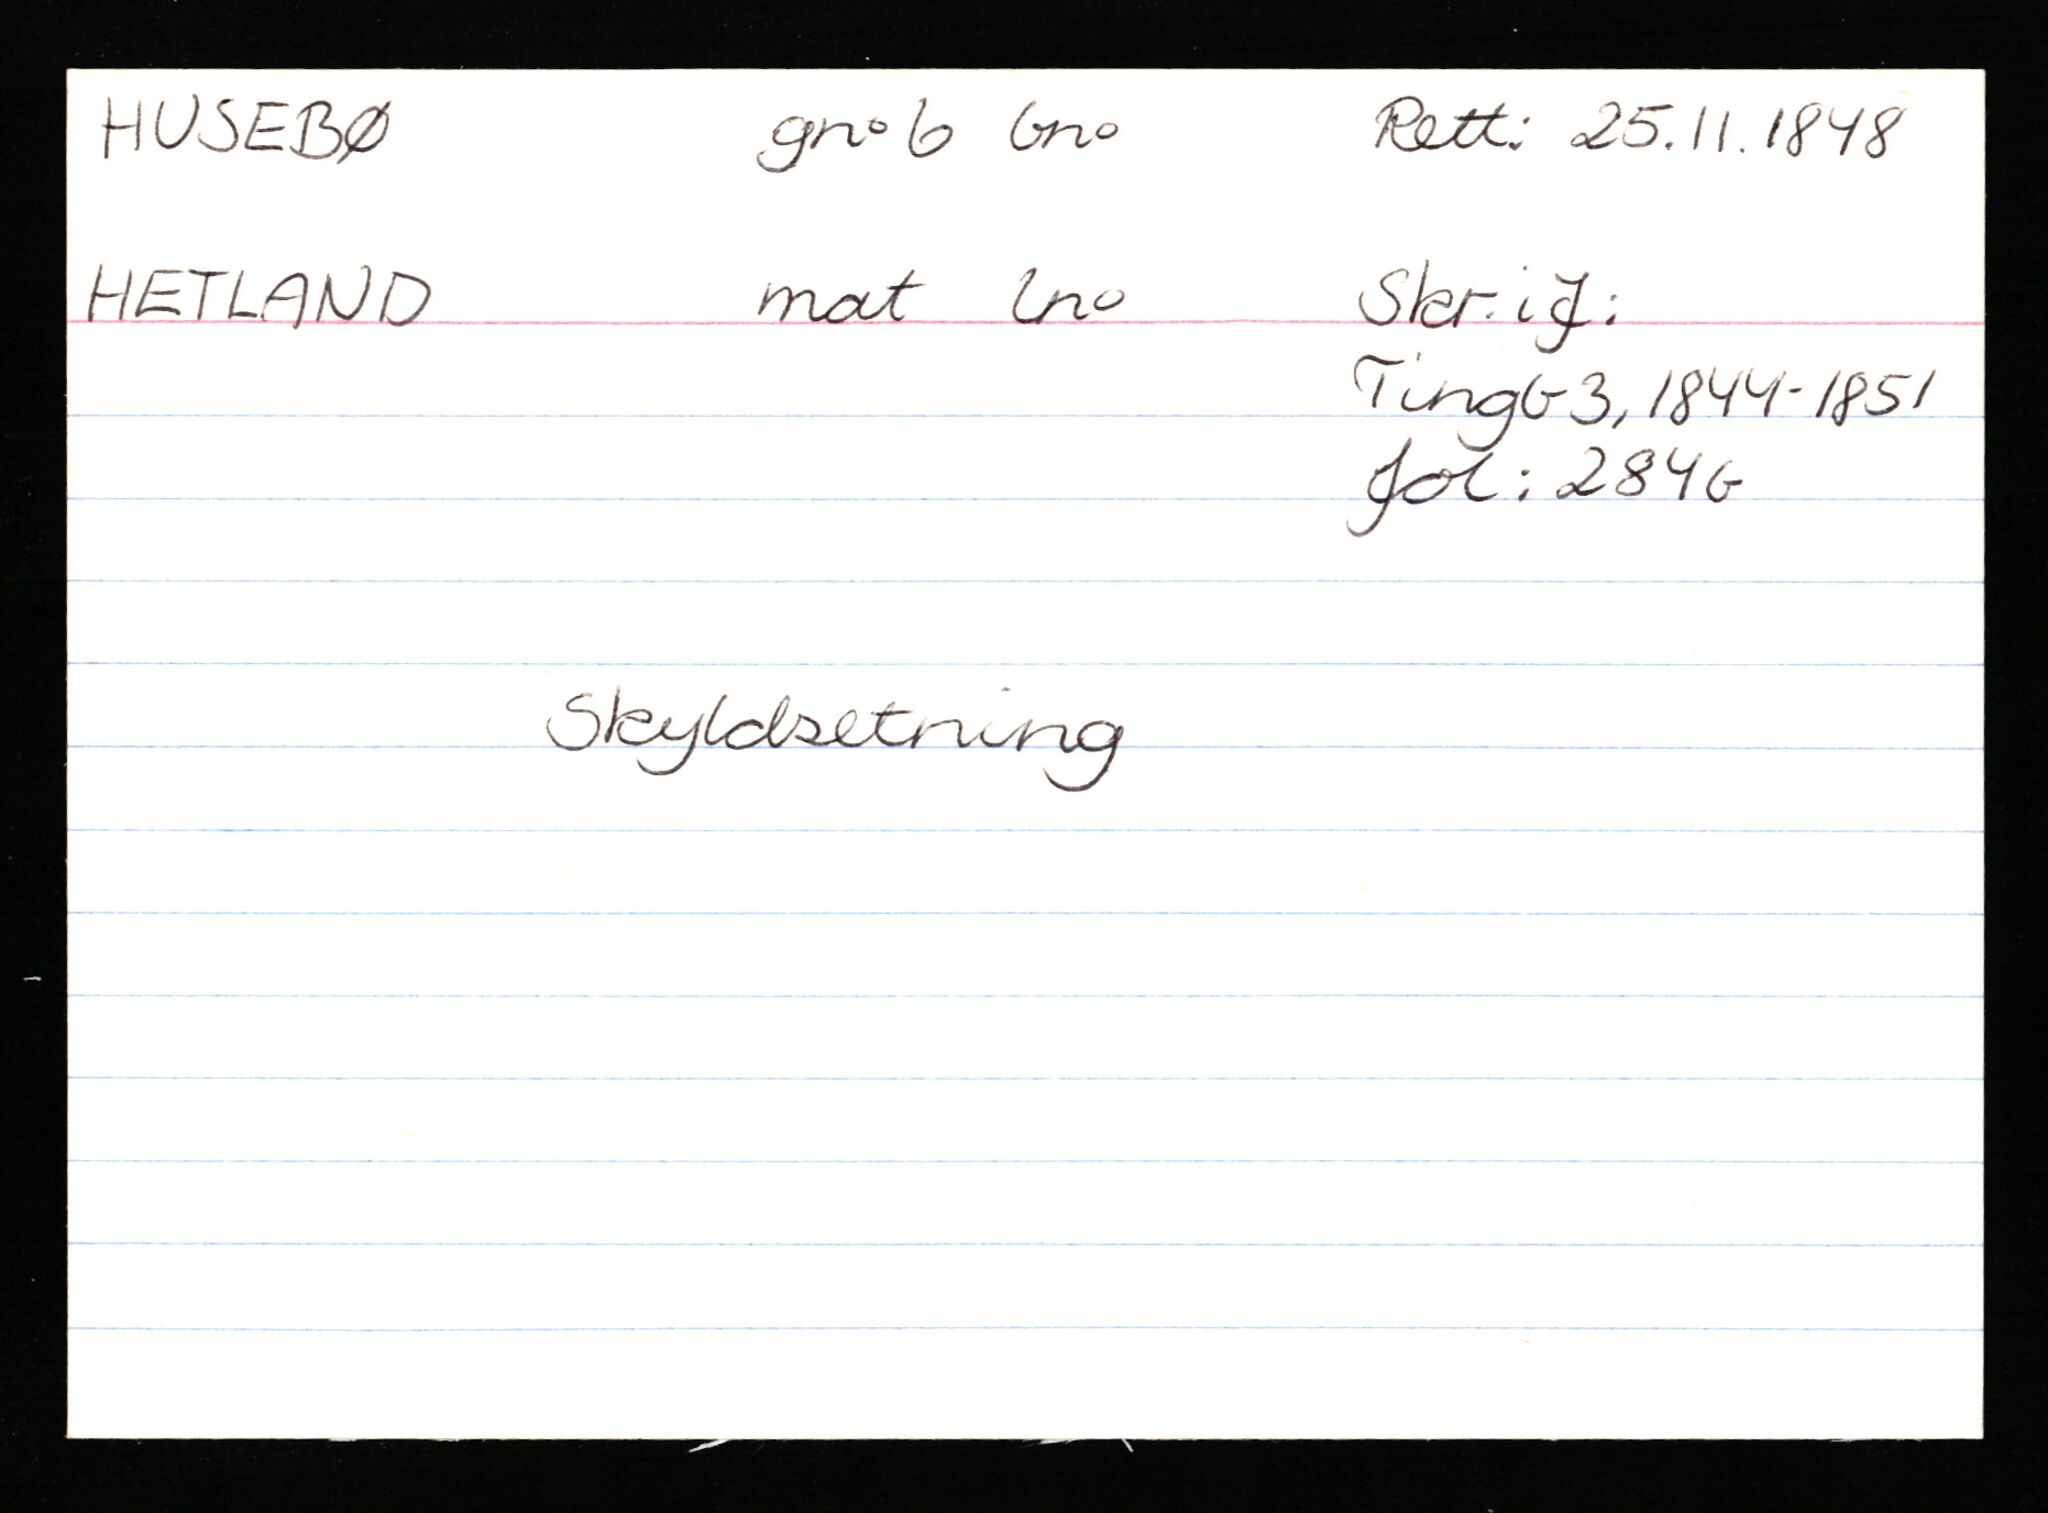 HUSEBØ gno 6 bno Rett: 25.11.1848
HETLAND mat lno Skr. i f:
Tingb 3, 1844-1851
fol: 284b
Skyldsetning